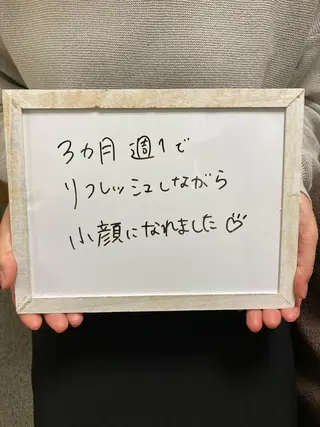 3ヵ月 週1で
リフレッシュしながら
小顔になれました♡